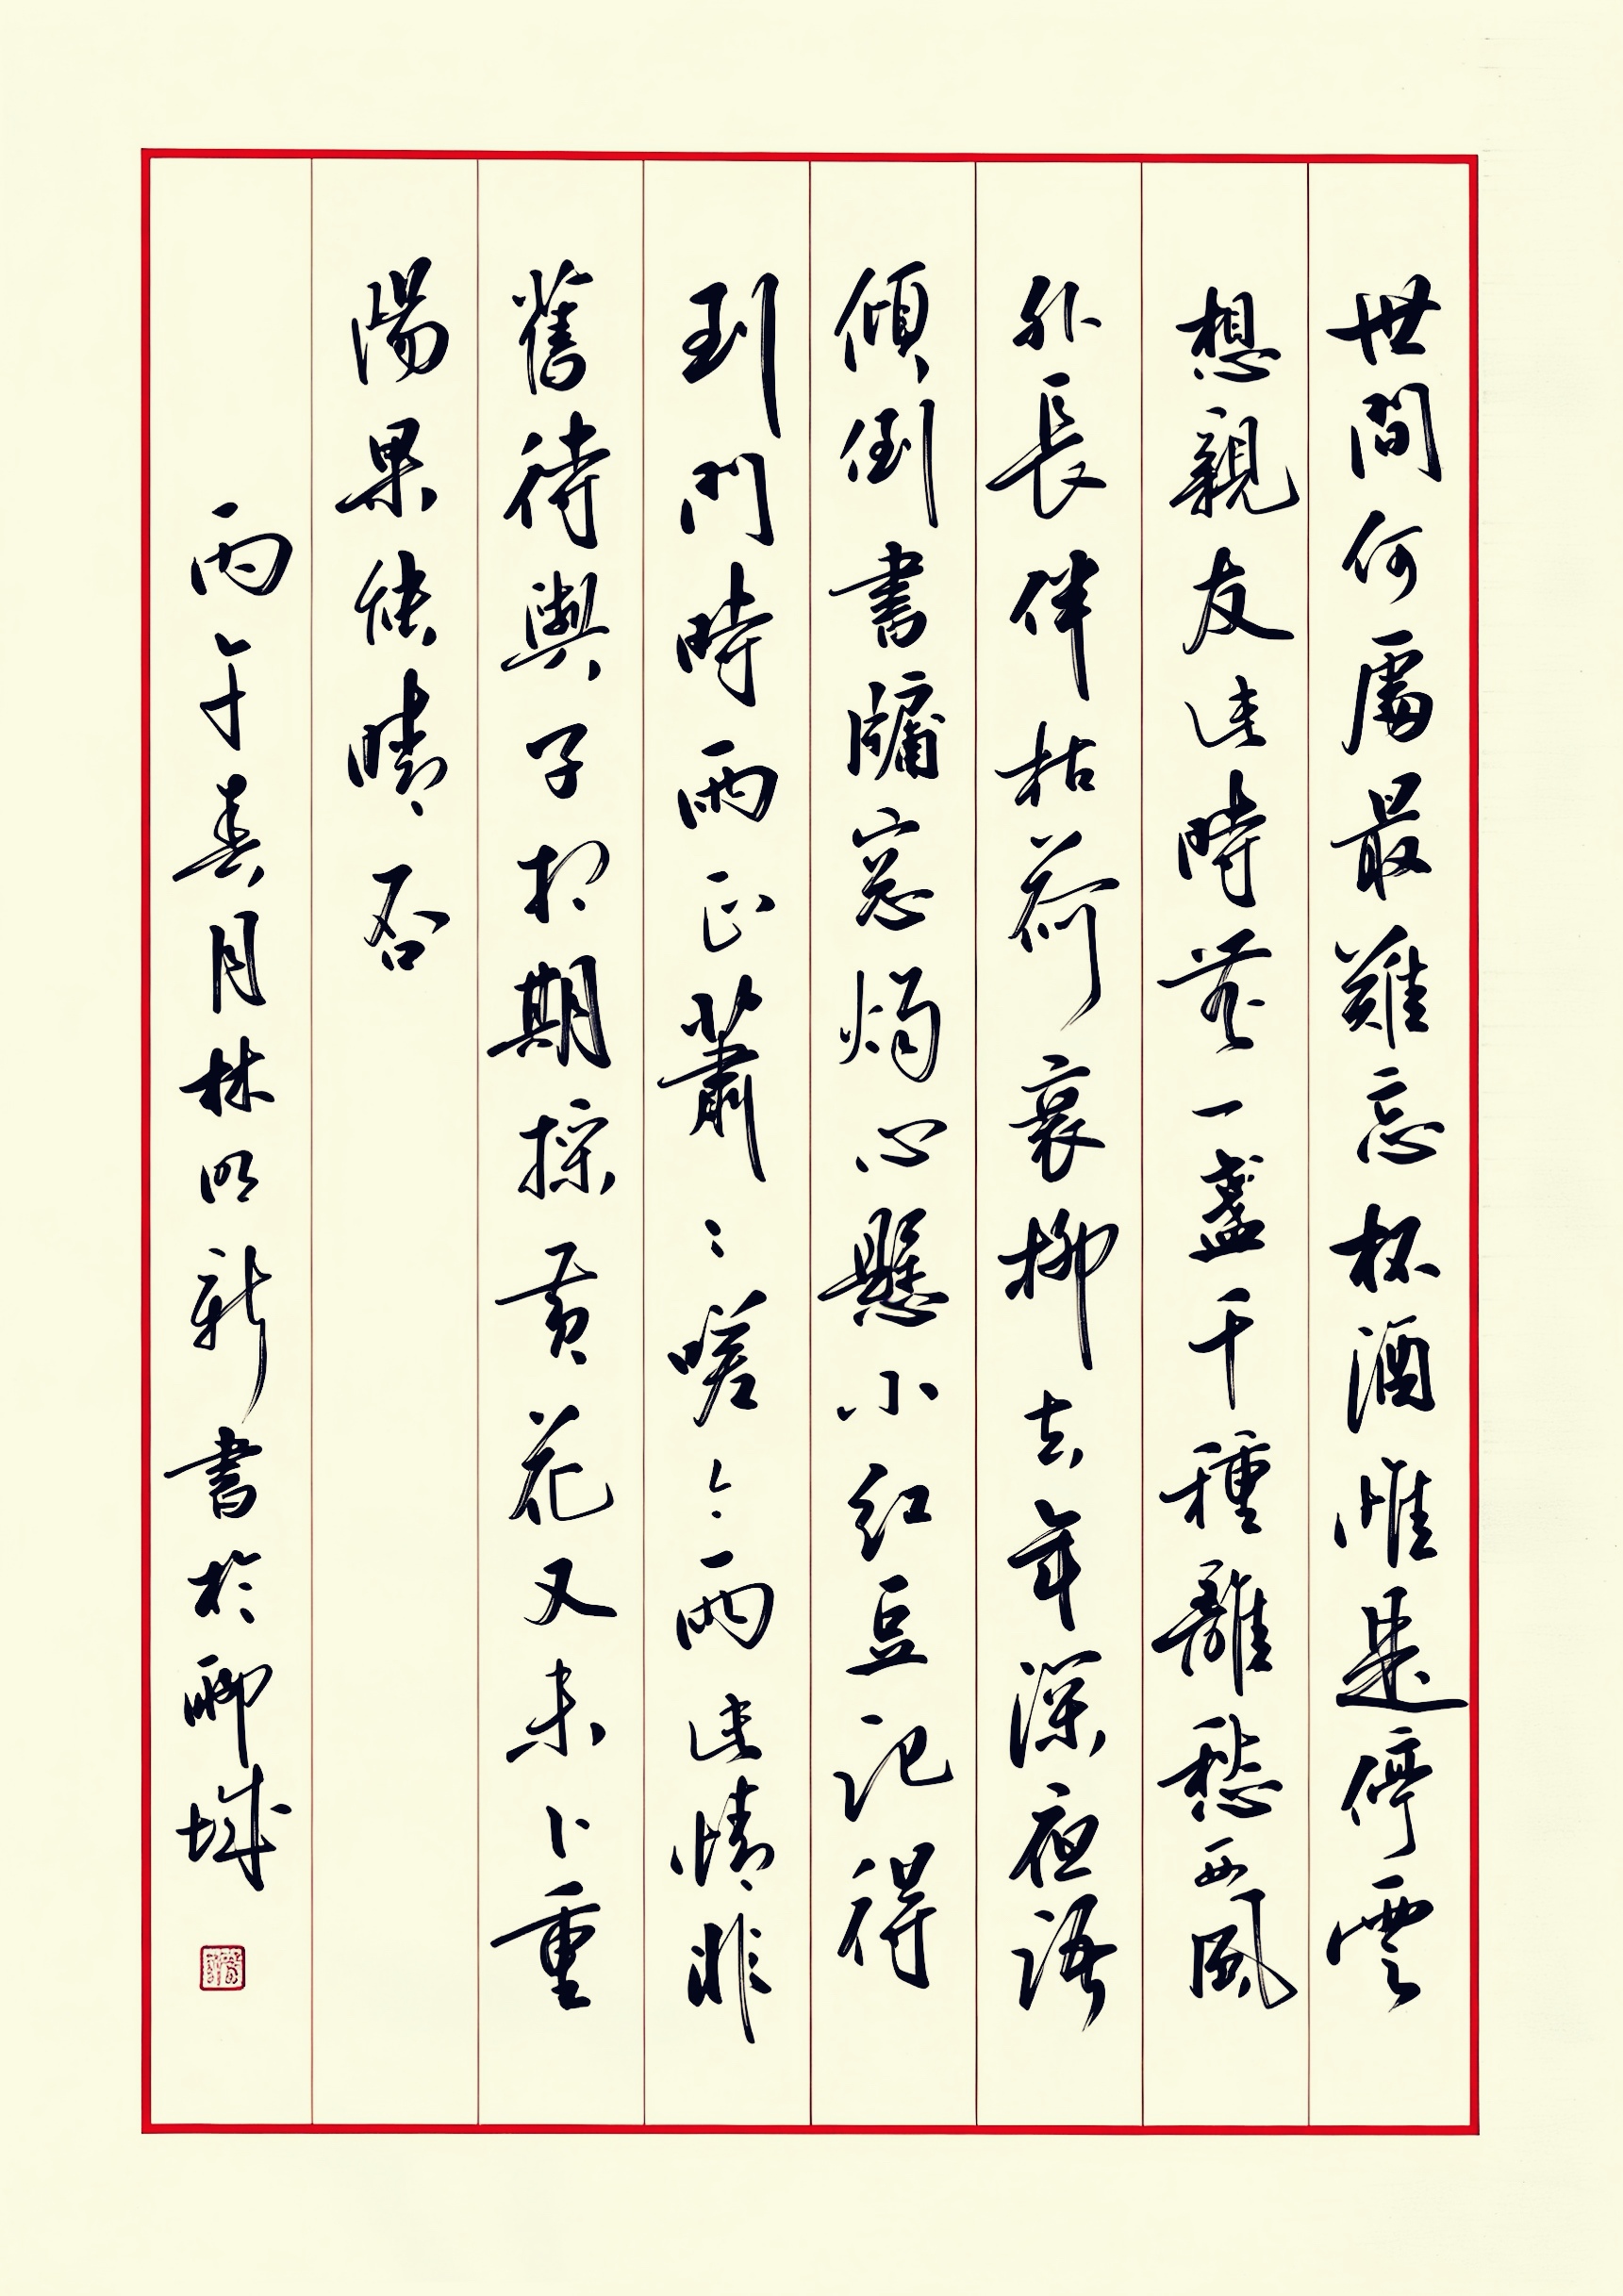 世間何處最難忘杯酒惟是停雲
想親友此時無一盞千種離愁西風
外長伴枯荷衰柳去年深夜語
傾倒書牖窓燭心懸小红豆記得
到門時雨正蕭々嗟今雨此情非
舊待與子相期採黃花又未卜重
陽果能晴否
丙午春月林明新書於聊城